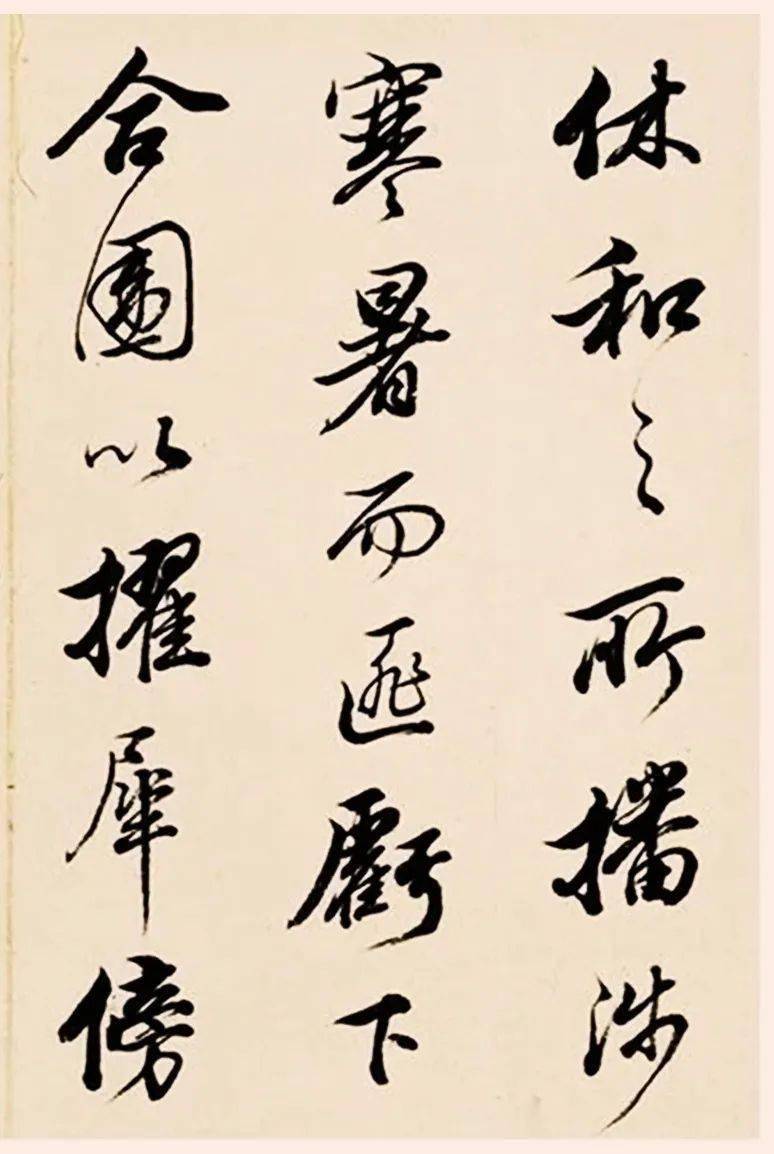 休和之所播涉
寒暑而匪虧下
合圍以擢犀傍